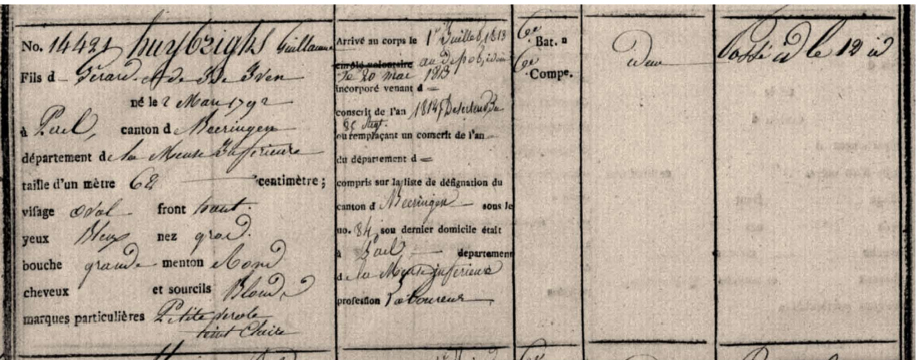 No. 14421 huybrighs Guillaume
Fils d Gérard et de
né le 2 Mars 1792
à Pael, canton d Beeringen
département de la Meuse Inférieure
taille d'un mètre 62 centimètre;
visage oval front haut.
yeux Bleux nez gros.
bouche grande menton Rond
cheveux et sourcils Blonds
marques particulières Petite verole
teint Claire
Arrivé au corps le 1er Juillet 1813
enrôlé volontaire au depot,
le 20 mai 1813
incorporé venant d
conscrit de l'an 1814
ou remplaçant un conscrit de l'an
du département d
compris sur la liste de désignation du
canton d Beeringen sous le
no. 84, son dernier domicile était
à Pael département
de la Meuse inférieure
profession Laboureur
6e Bat.n
6e Compe.
Passé id le 12 id